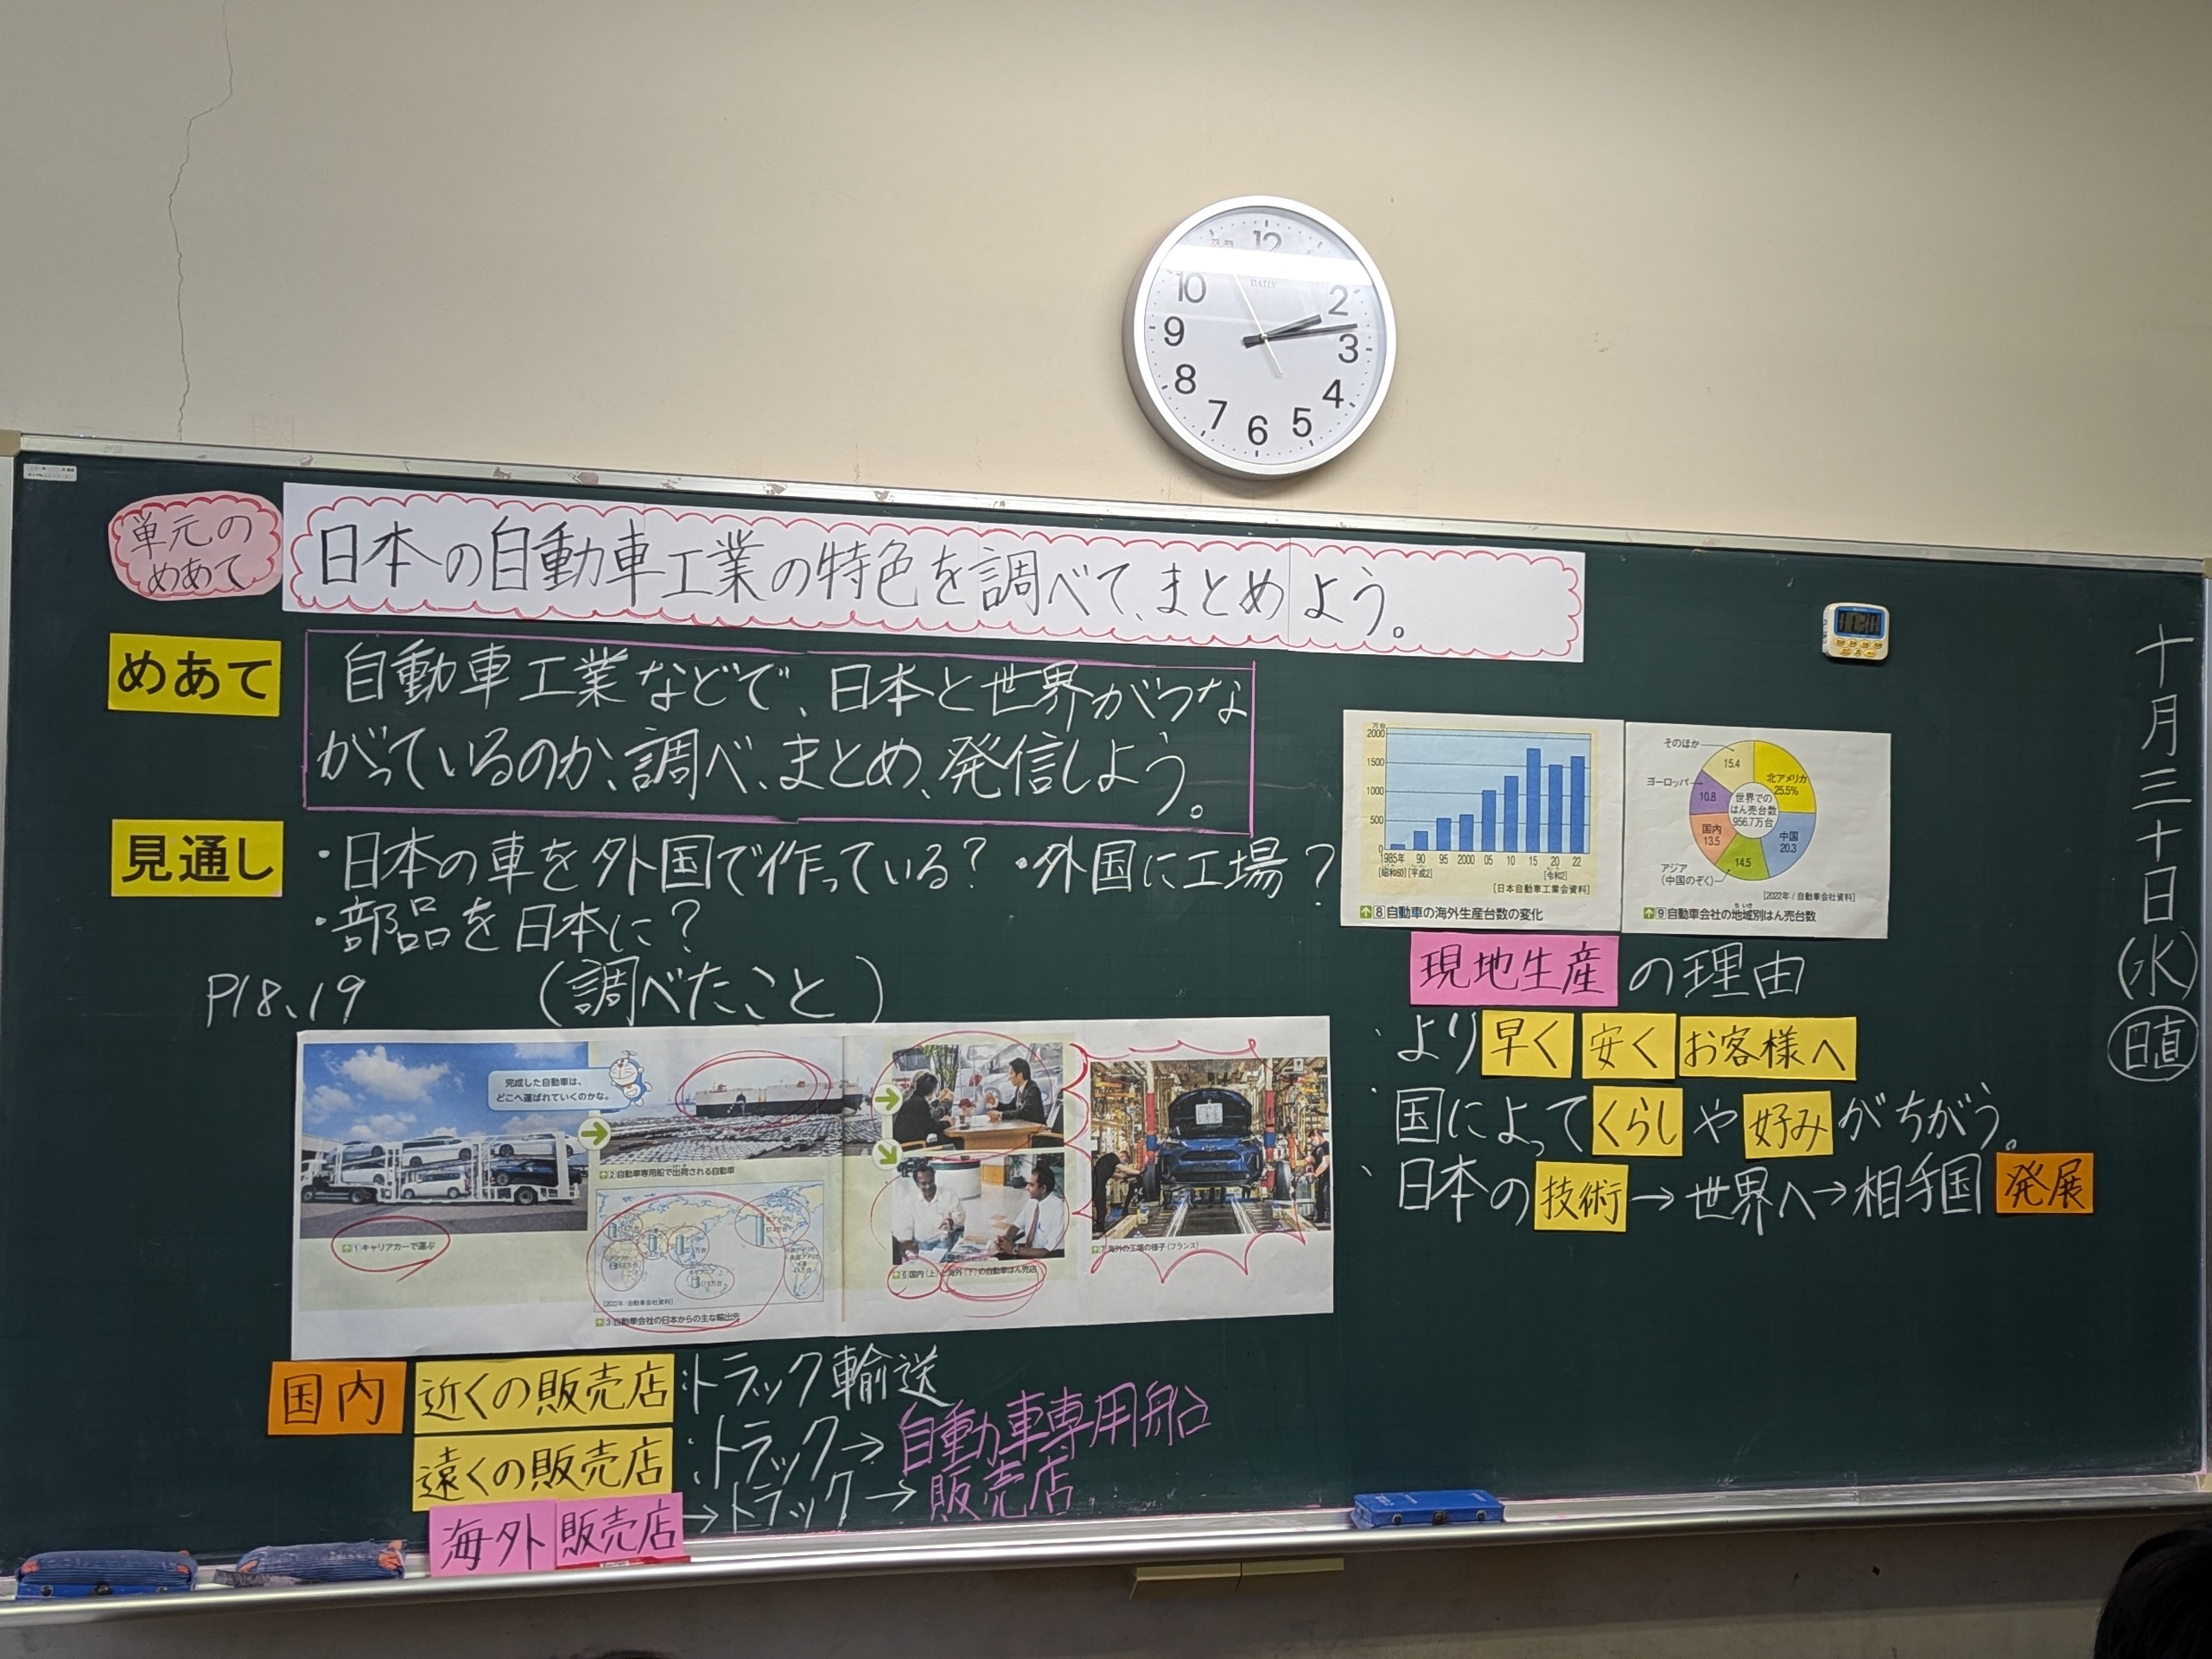 12
DAILY
10
2
9
3
8
4
7
5
6
単元の
めあて
日本の自動車工業の特色を調べて、まとめよう。
めあて
自動車工業などで、日本と世界がつな
がっているのか、調べ、まとめ、発信しよう。
見通し
・日本の車を外国で作っている？・外国に工場？
・部品を日本に？
P18、19
（調べたこと）
完成した自動車は、
どこへ運ばれていくのかな。
1 キャリアカーで運ぶ
2 自動車専用船で出荷される自動車
[2022年/自動車会社資料]
3 自動車会社の日本からの主な輸出先
6 国内(上)と海外(下)の自動車はん売店
7 海外の工場の様子(フランス)
国内 近くの販売店：トラック輸送
遠くの販売店：トラック→自動車専用船
海外 販売店→トラック→販売店
万台
2000
1500
1000
500
0
1985年 90 95 2000 05 10 15 20 22
[昭和60] [平成2] [令和2]
[日本自動車工業会資料]
8 自動車の海外生産台数の変化
そのほか
15.4
北アメリカ
25.5%
ヨーロッパ
10.8
世界での
はん売台数
956.7万台
国内
13.5
中国
20.3
14.5
アジア
(中国のぞく)
[2022年/自動車会社資料]
9 自動車会社の地域別はん売台数
現地生産の理由
・より早く安くお客様へ
・国によってくらしや好みがちがう。
・日本の技術→世界へ→相手国 発展
十月三十日(水)
日直